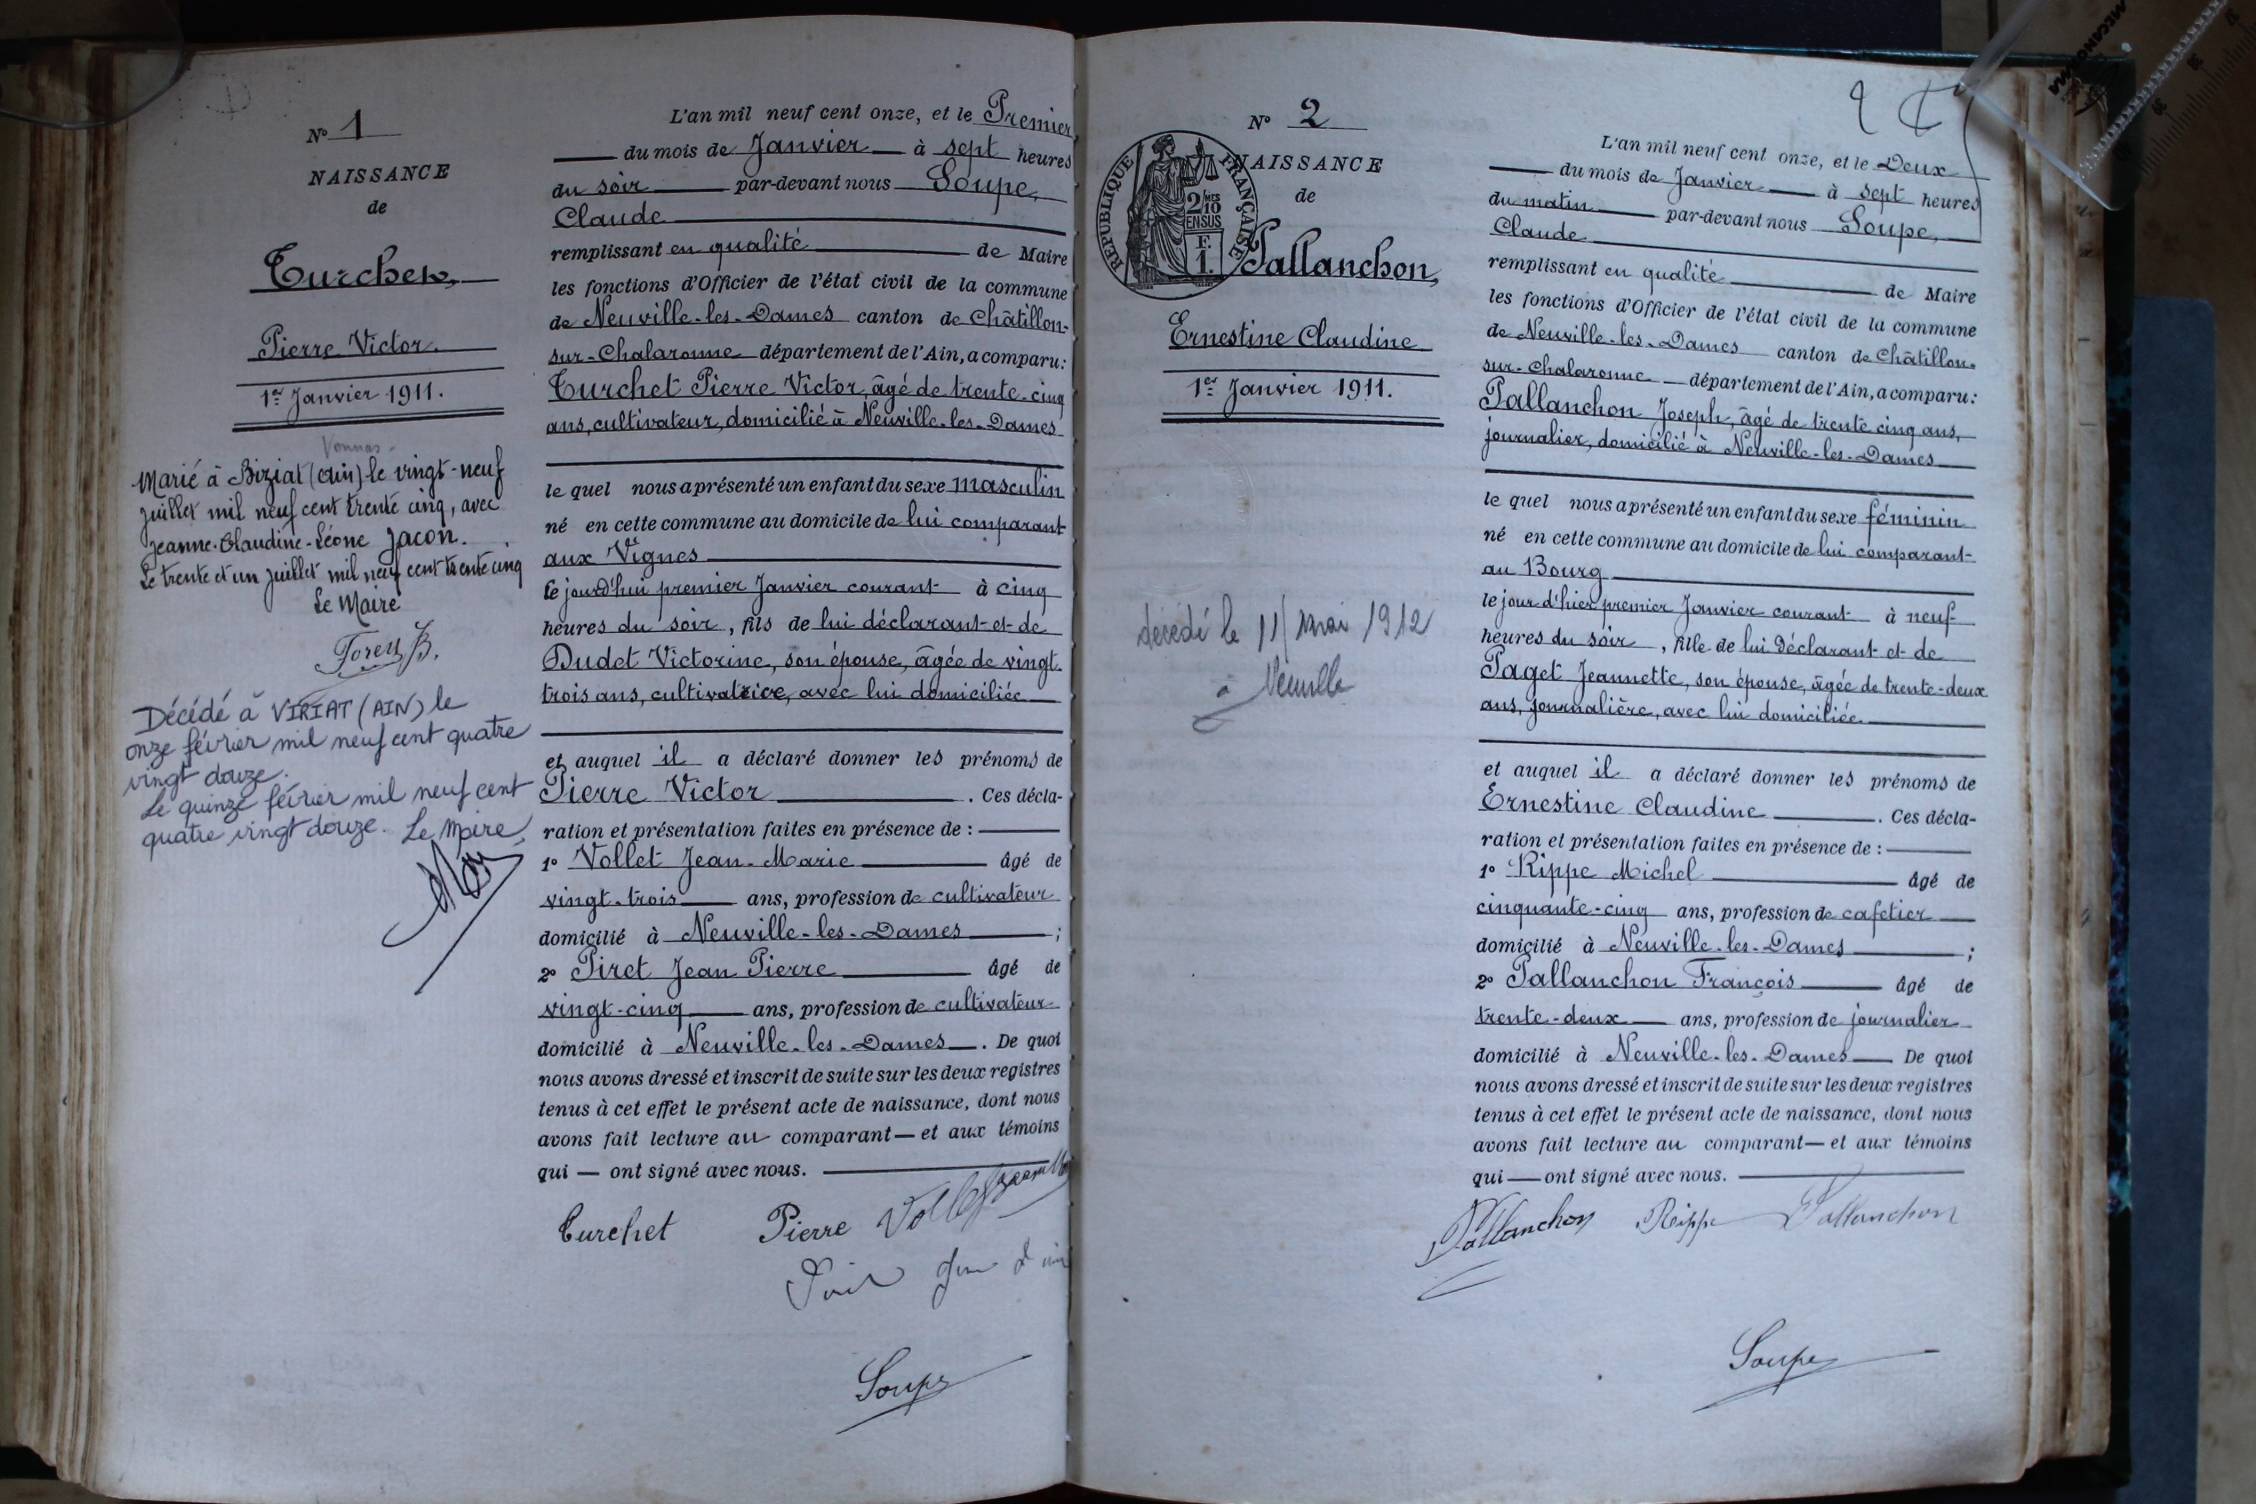 N° 1
NAISSANCE
de
Turchet,
Pierre Victor.
1er Janvier 1911.
Vonnas
Marié à Biziat (Ain) le vingt-neuf
juillet mil neuf cent trente cinq, avec
Jeanne-Claudine-Léone Jacon.
Le trente et un juillet mil neuf cent trente cinq
Le Maire
Décédé à VIRIAT (AIN) le
onze février mil neuf cent quatre
vingt douze.
Le quinze février mil neuf cent
quatre vingt douze. Le Maire,
L'an mil neuf cent onze, et le Premier
du mois de Janvier à sept heures
du soir par-devant nous Soupe,
Claude
remplissant en qualité de Maire
les fonctions d'Officier de l'état civil de la commune
de Neuville-les-Dames canton de Châtillon-
sur-Chalaronne département de l'Ain, a comparu:
Turchet Pierre Victor, âgé de trente-cinq
ans, cultivateur, domicilié à Neuville-les-Dames
le quel nous a présenté un enfant du sexe masculin
né en cette commune au domicile de lui comparant
aux Vignes
le jourd'hui premier Janvier courant à cinq
heures du soir, fils de lui déclarant et de
Dudet Victorine, son épouse, âgée de vingt-
trois ans, cultivatrice, avec lui domiciliée
et auquel il a déclaré donner les prénoms de
Pierre Victor. Ces décla-
ration et présentation faites en présence de :
1° Vollet Jean-Marie âgé de
vingt-trois ans, profession de cultivateur
domicilié à Neuville-les-Dames ;
2° Piret Jean Pierre âgé de
vingt-cinq ans, profession de cultivateur
domicilié à Neuville-les-Dames. De quoi
nous avons dressé et inscrit de suite sur les deux registres
tenus à cet effet le présent acte de naissance, dont nous
avons fait lecture au comparant et aux témoins
qui ont signé avec nous.
Turchet Pierre Vollet
Soupe
N° 2
NAISSANCE
de
RÉPUBLIQUE FRANÇAISE
2 MES
10
EN SUS
F.
1.
Pallanchon,
Ernestine Claudine
1er Janvier 1911.
décédé le 11 mai 1912
à Neuville
2
L'an mil neuf cent onze, et le Deux
du mois de Janvier à sept heures
du matin par-devant nous Soupe,
Claude
remplissant en qualité de Maire
les fonctions d'Officier de l'état civil de la commune
de Neuville-les-Dames canton de Châtillon-
sur-Chalaronne département de l'Ain, a comparu:
Pallanchon Joseph, âgé de trente cinq ans,
journalier, domicilié à Neuville-les-Dames
le quel nous a présenté un enfant du sexe féminin
né en cette commune au domicile de lui comparant
au Bourg
le jour d'hier premier Janvier courant à neuf
heures du soir, fille de lui déclarant et de
Paget Jeannette, son épouse, âgée de trente-deux
ans, journalière, avec lui domiciliée.
et auquel il a déclaré donner les prénoms de
Ernestine Claudine. Ces décla-
ration et présentation faites en présence de :
1° Rippe Michel âgé de
cinquante-cinq ans, profession de cafetier
domicilié à Neuville-les-Dames ;
2° Pallanchon François âgé de
trente-deux ans, profession de journalier
domicilié à Neuville-les-Dames De quoi
nous avons dressé et inscrit de suite sur les deux registres
tenus à cet effet le présent acte de naissance, dont nous
avons fait lecture au comparant et aux témoins
qui ont signé avec nous.
Pallanchon Rippe Pallanchon
Soupe